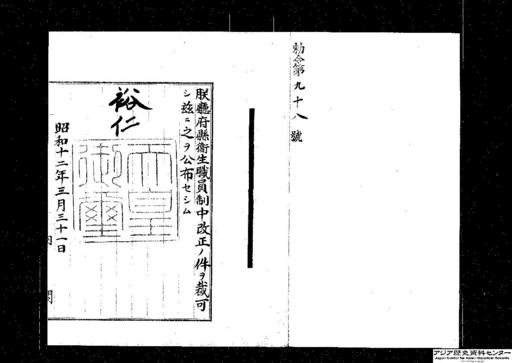 勅令第九十八號
朕廳府縣衛生職員制中改正ノ件ヲ裁可
シ茲ニ之ヲ公布セシム
裕仁
天皇
御璽
昭和十二年三月三十一日
アジア歴史資料センター
Japan Center for Asian Historical Records